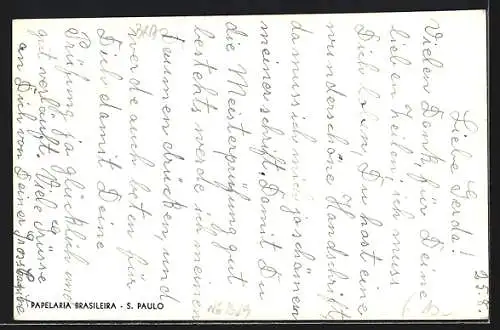 25.8.
Liebe Gerda!
Vielen Dank für Deine
lieben Zeilen, ich muss
Dich loben, Du hast eine
wunderschöne Handschrift,
da muss ich mich ja schämen
meiner schrift. Damit Du
die Meisterprüfung gut
bestehts werde ich meinen
Daumen drücken, und
werde auch beten für
Dich damit Deine
Prüfung ja glücklich und
gut verläuft. Viele Grüsse
an Dich von Deiner
PAPELARIA BRASILEIRA - S. PAULO